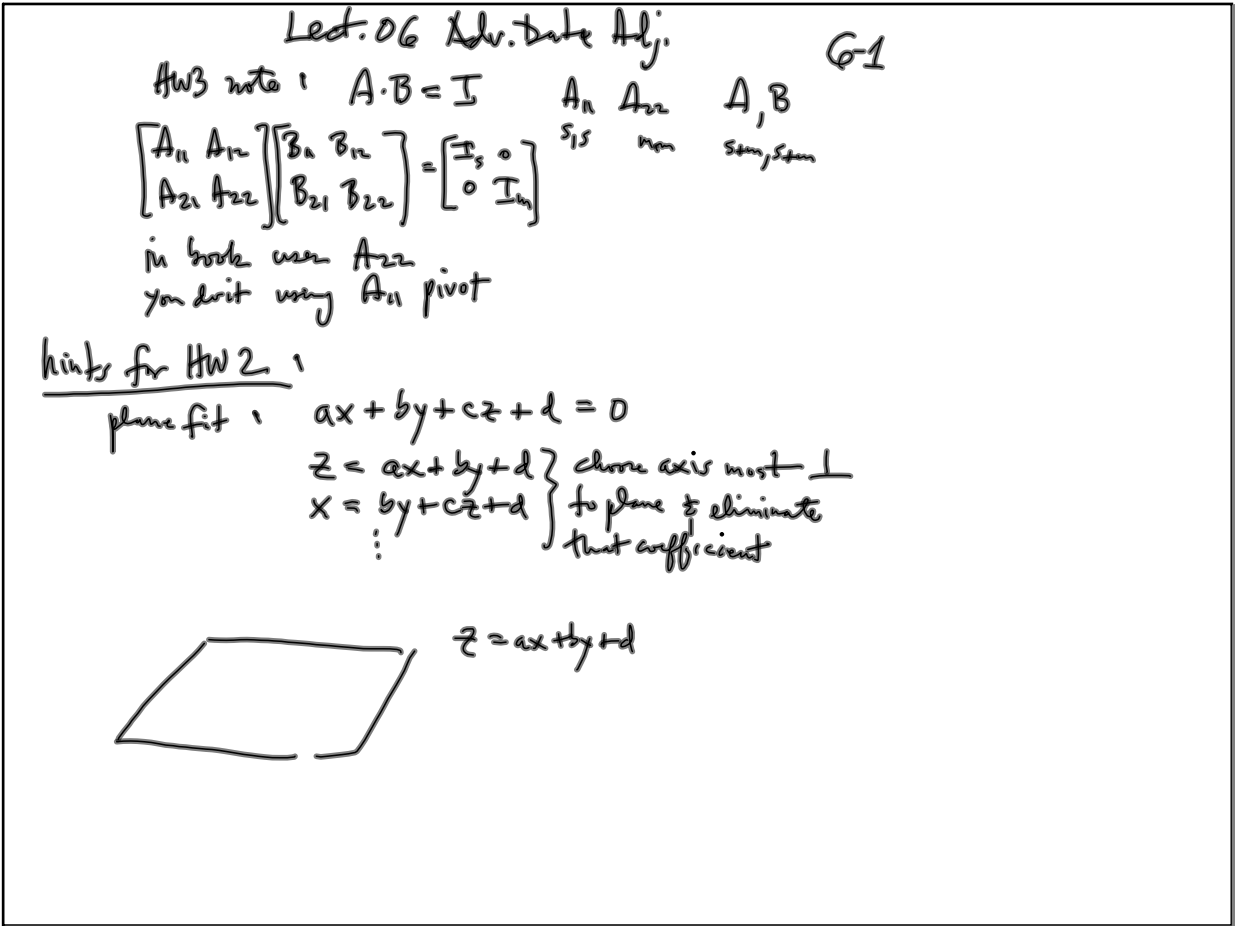 Lect. 06 Adv. Data Adj.
6-1
HW3 note: A·B = I A₁₁ A₂₂ A, B
s,s m,m s+m, s+m
[A₁₁ A₁₂ [B₁₁ B₁₂ = [I_s 0
A₂₁ A₂₂] B₂₁ B₂₂] 0 I_m]
in book uses A₂₂
you do it using A₁₁ pivot
hints for HW 2:
plane fit: ax + by + cz + d = 0
z = ax + by + d } choose axis most ⊥
x = by + cz + d to plane & eliminate
⋮ that coefficient
z = ax + by + d